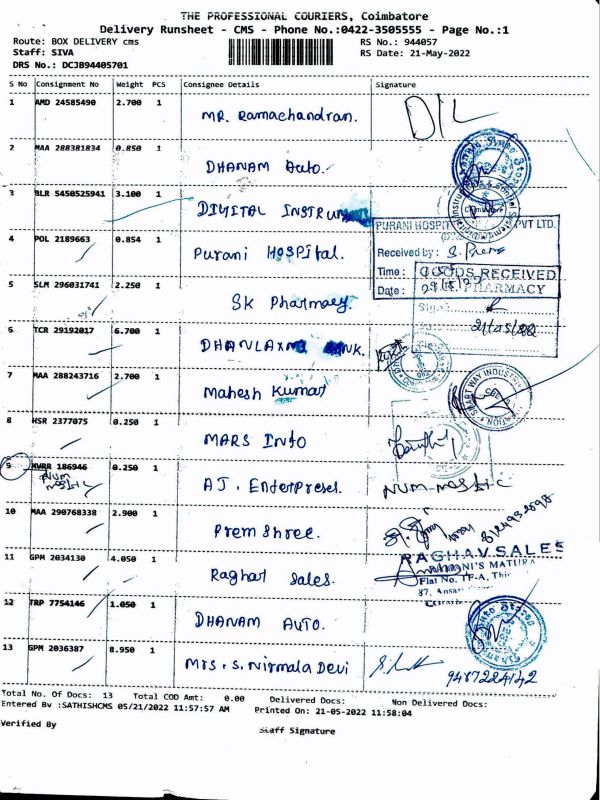 THE PROFESSIONAL COURIERS, Coimbatore
Delivery Runsheet - CMS - Phone No.:0422-3505555 - Page No.:1
Route: BOX DELIVERY cms RS No.: 944057
Staff: SIVA RS Date: 21-May-2022
DRS No.: DCJB94405701
S No Consignment No Weight PCS Consignee Details Signature
1 AMD 24585490 2.700 1 MR. Ramachandran. D/L
2 MAA 288381834 0.850 1 DHANAM Auto.
3 BLR 5450525941 3.100 1 DIGITAL INSTRUM
PURANI HOSPIT PVT LTD.
4 POL 2189663 0.854 1 Purani HOSPital. Received by :
Time : GOODS RECEIVED
Date : PHARMACY
5 SLM 296031741 2.250 1 SK Pharmacy. Sign
21/05/22
6 TCR 29192017 6.700 1 DHANLAXMI BANK.
7 MAA 288243716 2.700 1 Mahesh Kumar SMART WAY INDUSTRI
8 HSR 2377075 0.250 1 MARS Info
9 186946 0.250 1 AJ. Enterprises.
10 MAA 290768338 2.900 1 Prem Shree.
RAGHAV SALES
11 GPM 2034130 4.050 1 Raghav Sales. MANI'S MATURA
Flat No. TF-A, Thir
87, Ansari
12 TRP 7754146 1.050 1 DHANAM AUTO.
13 GPM 2036387 8.950 1 Mrs. S. Nirmala Devi 9487224142
Total No. Of Docs: 13 Total COD Amt: 0.00 Delivered Docs: Non Delivered Docs:
Entered By :SATHISHCMS 05/21/2022 11:57:57 AM Printed On: 21-05-2022 11:58:04
Verified By Staff Signature